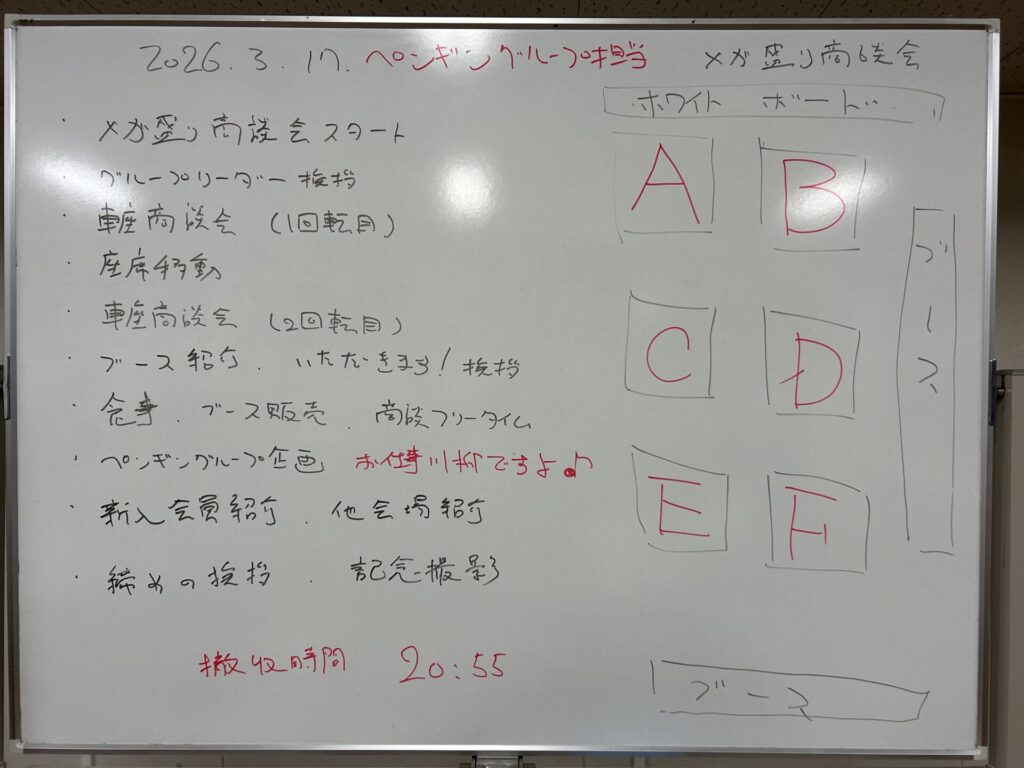 2026.3.17. ペンギングループ担当 メガ盛り商談会
・メガ盛り商談会スタート
・グループリーダー挨拶
・車座商談会 (1回転目)
・座席移動
・車座商談会 (2回転目)
・ブース紹介.いただきます!挨拶
・食事.ブース販売.商談フリータイム
・ペンギングループ企画 お仕事川柳ですよ♪
・新入会員紹介.他会場紹介
・締めの挨拶.記念撮影
撤収時間 20:55
ホワイト ボード
A B
C D
E F
ブース
ブース